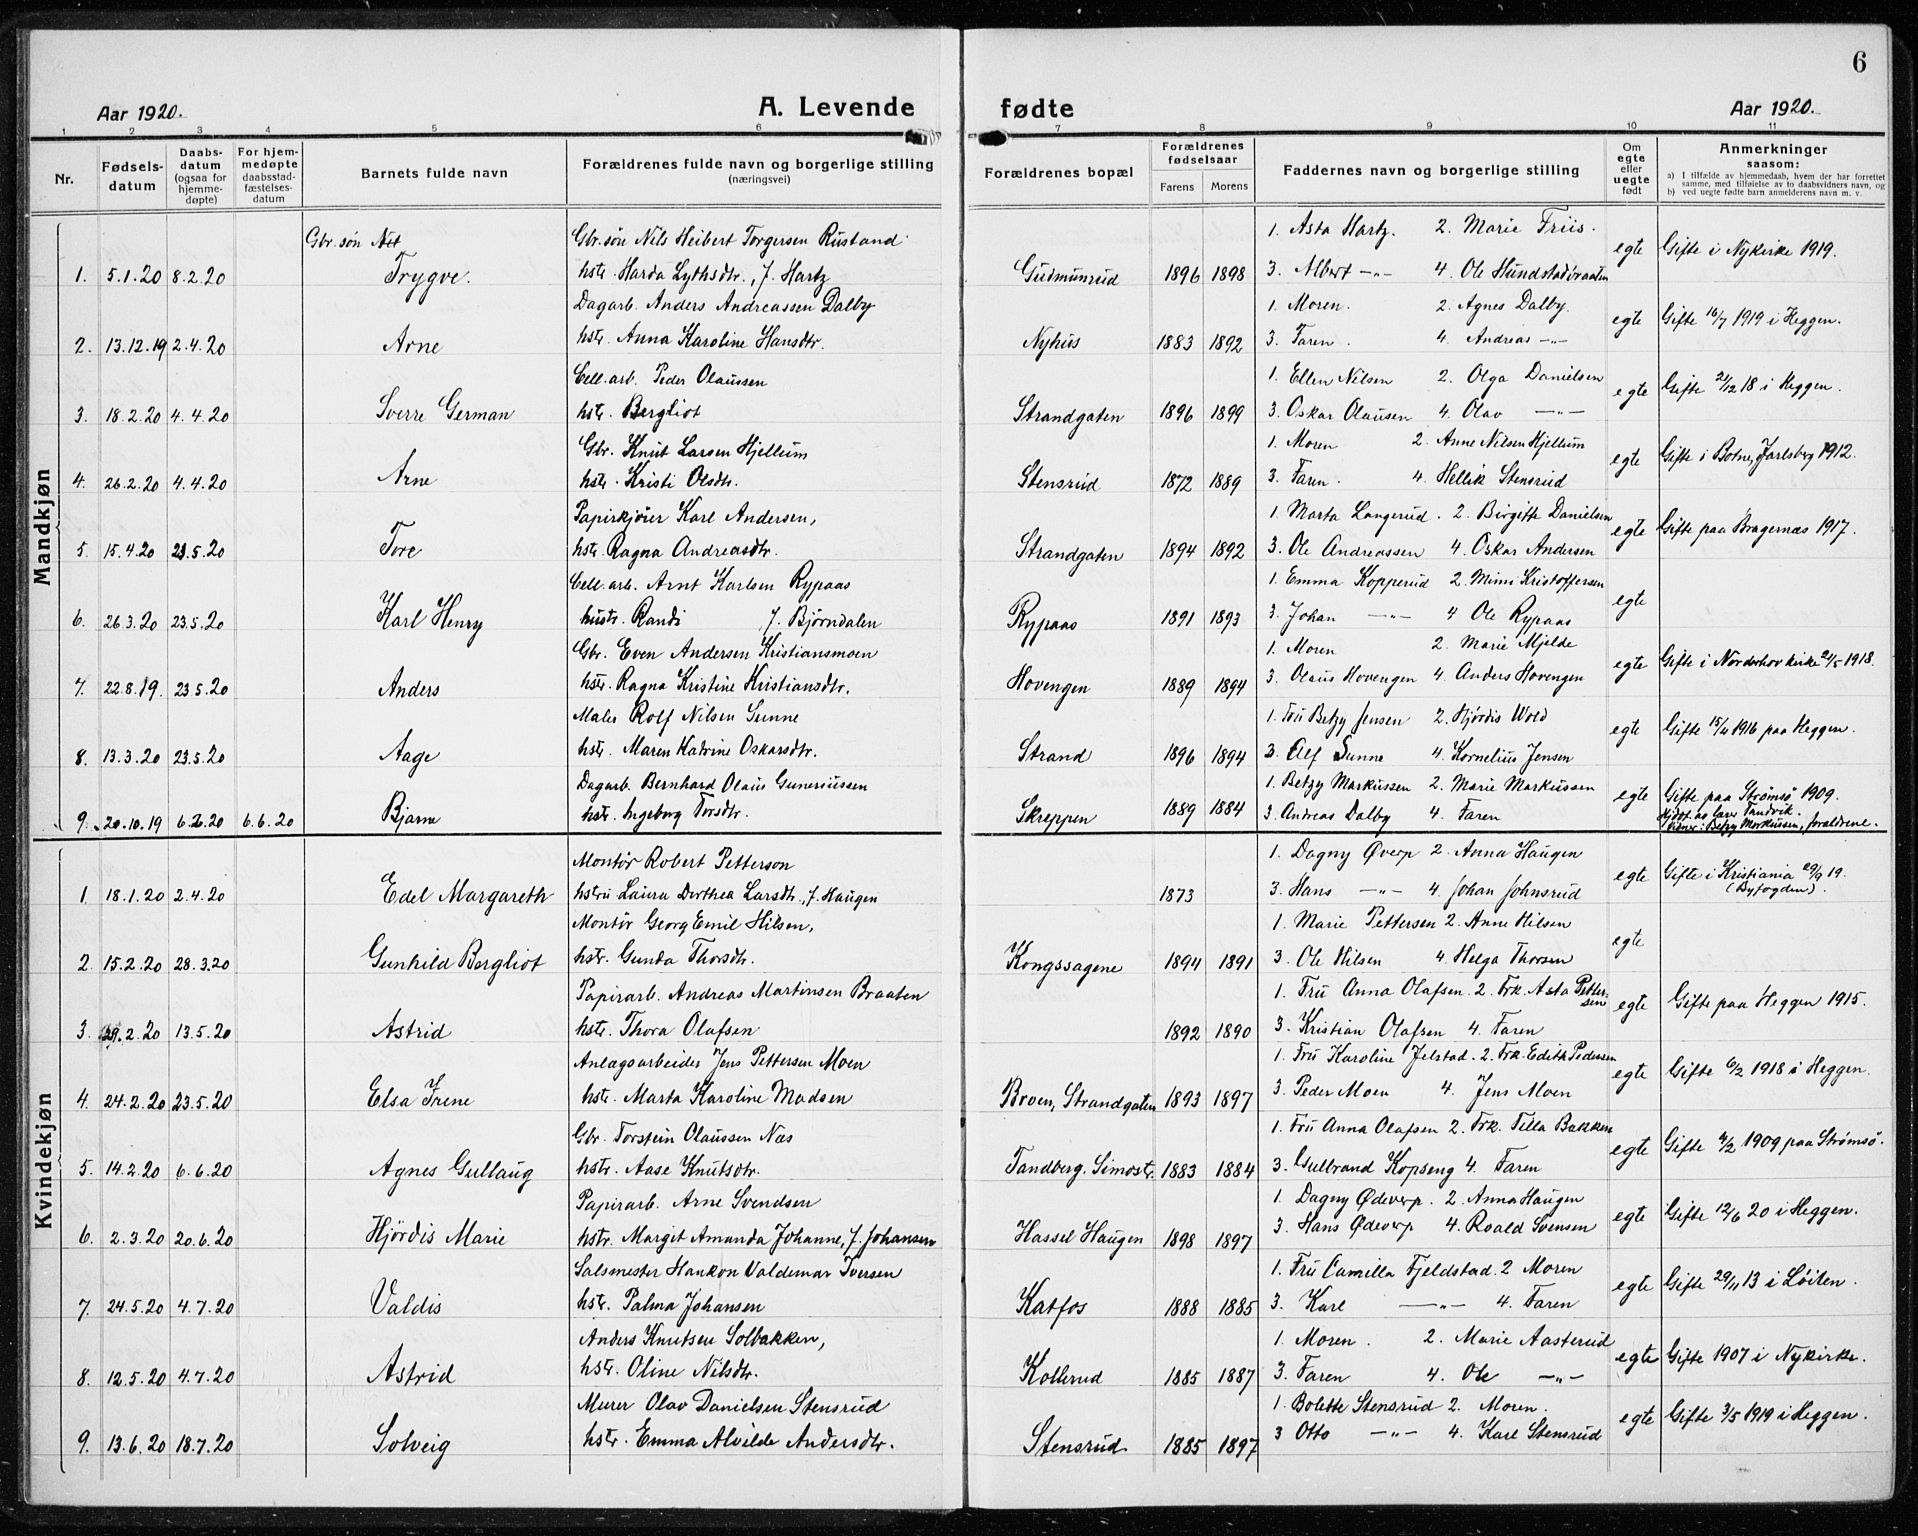 6
Aar 1920.
A. Levende
fødte
Aar 1920.
1 2 3 4 5 6 7 8 9 10 11
Nr.
Fødsels-
datum
Daabs-
datum
(ogsaa for
hjemme-
døpte)
For hjem-
medøpte
daabsstad-
fæstelses-
datum
Barnets fulde navn
Forældrenes fulde navn og borgerlige stilling
(næringsvei)
Forældrenes bopæl
Forældrenes
fødselsaar
Farens Morens
Faddernes navn og borgerlige stilling
Om
egte
eller
uegte
født
Anmerkninger
saasom:
a) I tilfælde av hjemmedaab, hvem der har forrettet
samme, med tilføielse av to daabsvidners navn, og
b) ved uegte fødte barn anmelderens navn m. v.
Mandkjøn
Gbr. søn Gbr. søn Nils Heibert Torgersen Rustand 1. Asta Hartz. 2. Marie Friis.
1. 5.1.20 8.2.20 Trygve. hstr. Harda Lythsdtr., f. Hartz Gudmunrud 1896 1898 3. Albert -"- 4. Ole Hundstadbraaten egte Gifte i Nykirke 1919.
Dagarb. Anders Andreassen Dalby 1. Moren. 2. Agnes Dalby.
2. 13.12.19 2.4.20 Arne hstr. Anna Karoline Hansdtr. Nyhus 1883 1892 3. Faren. 4. Andreas -"- egte Gifte 16/7 1919 i Heggen.
Cell. arb. Peder Olaussen 1. Ellen Nilsen 2. Olga Danielsen
3. 18.2.20 4.4.20 Sverre German hstr. Bergliot Strandgaten 1896 1899 3. Oskar Olausen 4. Olav -"- egte Gifte 21/12 18 i Heggen.
Gbr. Knut Larsen Hjellum 1. Moren 2. Anne Nilsen Hjellum
4. 26.2.20 4.4.20 Arne hstr. Kristi Olsdtr. Stensrud 1872 1889 3. Faren. 4. Hellik Stensrud egte Gifte i Botne, Jarlsberg 1912.
Papirkjører Karl Andersen, 1. Marta Langerud. 2. Birgitte Danielsen
5. 15.4.20 23.5.20 Tore hstr. Ragna Andreasdtr. Strandgaten 1894 1892 3. Ole Andreassen 4. Oskar Andersen egte Gifte paa Bragernæs 1917.
Cell. arb. Arnt Karlsen Rypaas 1. Emma Kopperud 2. Mimi Kristoffersen
6. 26.3.20 23.5.20 Karl Henry hustr. Randi f. Bjørndalen Rypaas 1891 1893 3. Johan -"- 4 Ole Rypaas egte
Gbr. Even Andersen Kristiansmoen 1. Moren 2. Marie Mjelde
7. 22.8.19. 23.5.20 Anders hstr. Ragna Kristine Kristiansdtr. Hovengen 1889 1894 3. Olaus Hovengen 4. Anders Hovengen egte Gifte i Norderhov kirke 24/5 1918.
Maler Rolf Nilsen Sunne 1. Fru Betzy Jensen 2. Hjørdis Wold
8. 13.3.20 23.5.20 Aage hstr. Maren Katrine Oskarsdtr. Strand 1896 1894 3. Alf Sunne 4. Kornelius Jensen egte Gifte 15/4 1916 paa Heggen.
Dagarb. Bernhard Olaus Guneriussen 1. Betzy Markussen 2. Marie Markussen
9. 20.10.19 6.2.20 6.6.20 Bjarne hstr. Ingeborg Torsdtr. Skreppen 1889 1884 3. Andreas Dalby 4. Faren egte Gifte paa Strømsø 1909.
Hjdøpt av Lars Tandvik.
Vidner: Betzy Markussen, forældrene.
Kvindekjøn
Montør Robert Petterson 1. Dagny Øverp 2. Anna Haugen
1 18.1.20 2.4.20 Edel Margareth hstru Laura Dorthea Larsdtr., f. Haugen 1873 3. Hans -"- 4. Johan Johnsrud egte Gifte i Kristiania 29/9 19.
(Byfogden).
Montør Georg Emil Hilsen, 1. Marie Pettersen 2. Anne Hilsen
2. 15.2.20 28.3.20 Gunhild Bergliot hstr. Gunda Thorsdtr. Kongssagene 1894 1891 3. Ole Hilsen 4. Helga Thorsen egte
Papirarb. Andreas Martinsen Braaten 1. Fru Anna Olafsen 2. Frk. Asta Petter-
sen
3. 29.2.20 13.5.20 Astrid hstr. Thora Olafsen 1892 1890 3. Kristian Olafsen 4. Faren egte Gifte paa Heggen 1915.
Anlægsarbeider Jens Pettersen Moen 1. Fru Karoline Jelstad. 2. Frk. Edith Pedersen
4. 24.2.20 23.5.20 Elsa Irene hstr. Marta Karoline Madsen Broen, Strandgaten 1893 1897 3. Peder Moen 4. Jens Moen egte Gifte 6/2 1918 i Heggen.
Gbr. Torstein Olaussen Næs 1. Fru Anna Olafsen 2. Frk. Tilla Bakken
5. 14.2.20 6.6.20 Agnes Gullaug hstr. Aase Knutsdtr. Tandberg, Simostr. 1883 1884 3. Gulbrand Kopseng 4. Faren egte Gifte 4/2 1909 paa Strømsø.
Papirarb. Arne Svendsen 1. Dagny Ødeverp. 2. Anna Haugen
6. 2.3.20 20.6.20 Hjørdis Marie hstr. Margit Amanda Johanne, f. Johansen Hassel Haugen 1898 1897 3. Hans Ødeverp 4. Roald Svensen egte Gifte 12/6 20 i Heggen.
Salsmester Haakon Valdemar Iversen 1. Fru Camilla Fjeldstad. 2 Moren
7. 24.5.20 4.7.20 Valdis hstr. Palma Johansen Katfos 1888 1885 3. Karl -"- 4. Faren egte Gifte 29/11 13 i Løiten.
Anders Knutsen Solbakken, 1. Moren. 2. Marie Aasterud
8. 12.5.20 4.7.20 Astrid hstr. Oline Nilsdtr. Kollerud 1885 1887 3. Faren 4. Ole -"- egte Gifte 1907 i Nykirke.
Murer Olav Danielsen Stensrud 1. Bolette Stensrud 2. Moren.
9. 13.6.20 18.7.20 Solveig hstr. Emma Alvilde Andersdtr. Stensrud. 1885 1897 3 Otto -"- 4. Karl Stensrud egte Gifte 3/5 1919 i Heggen.